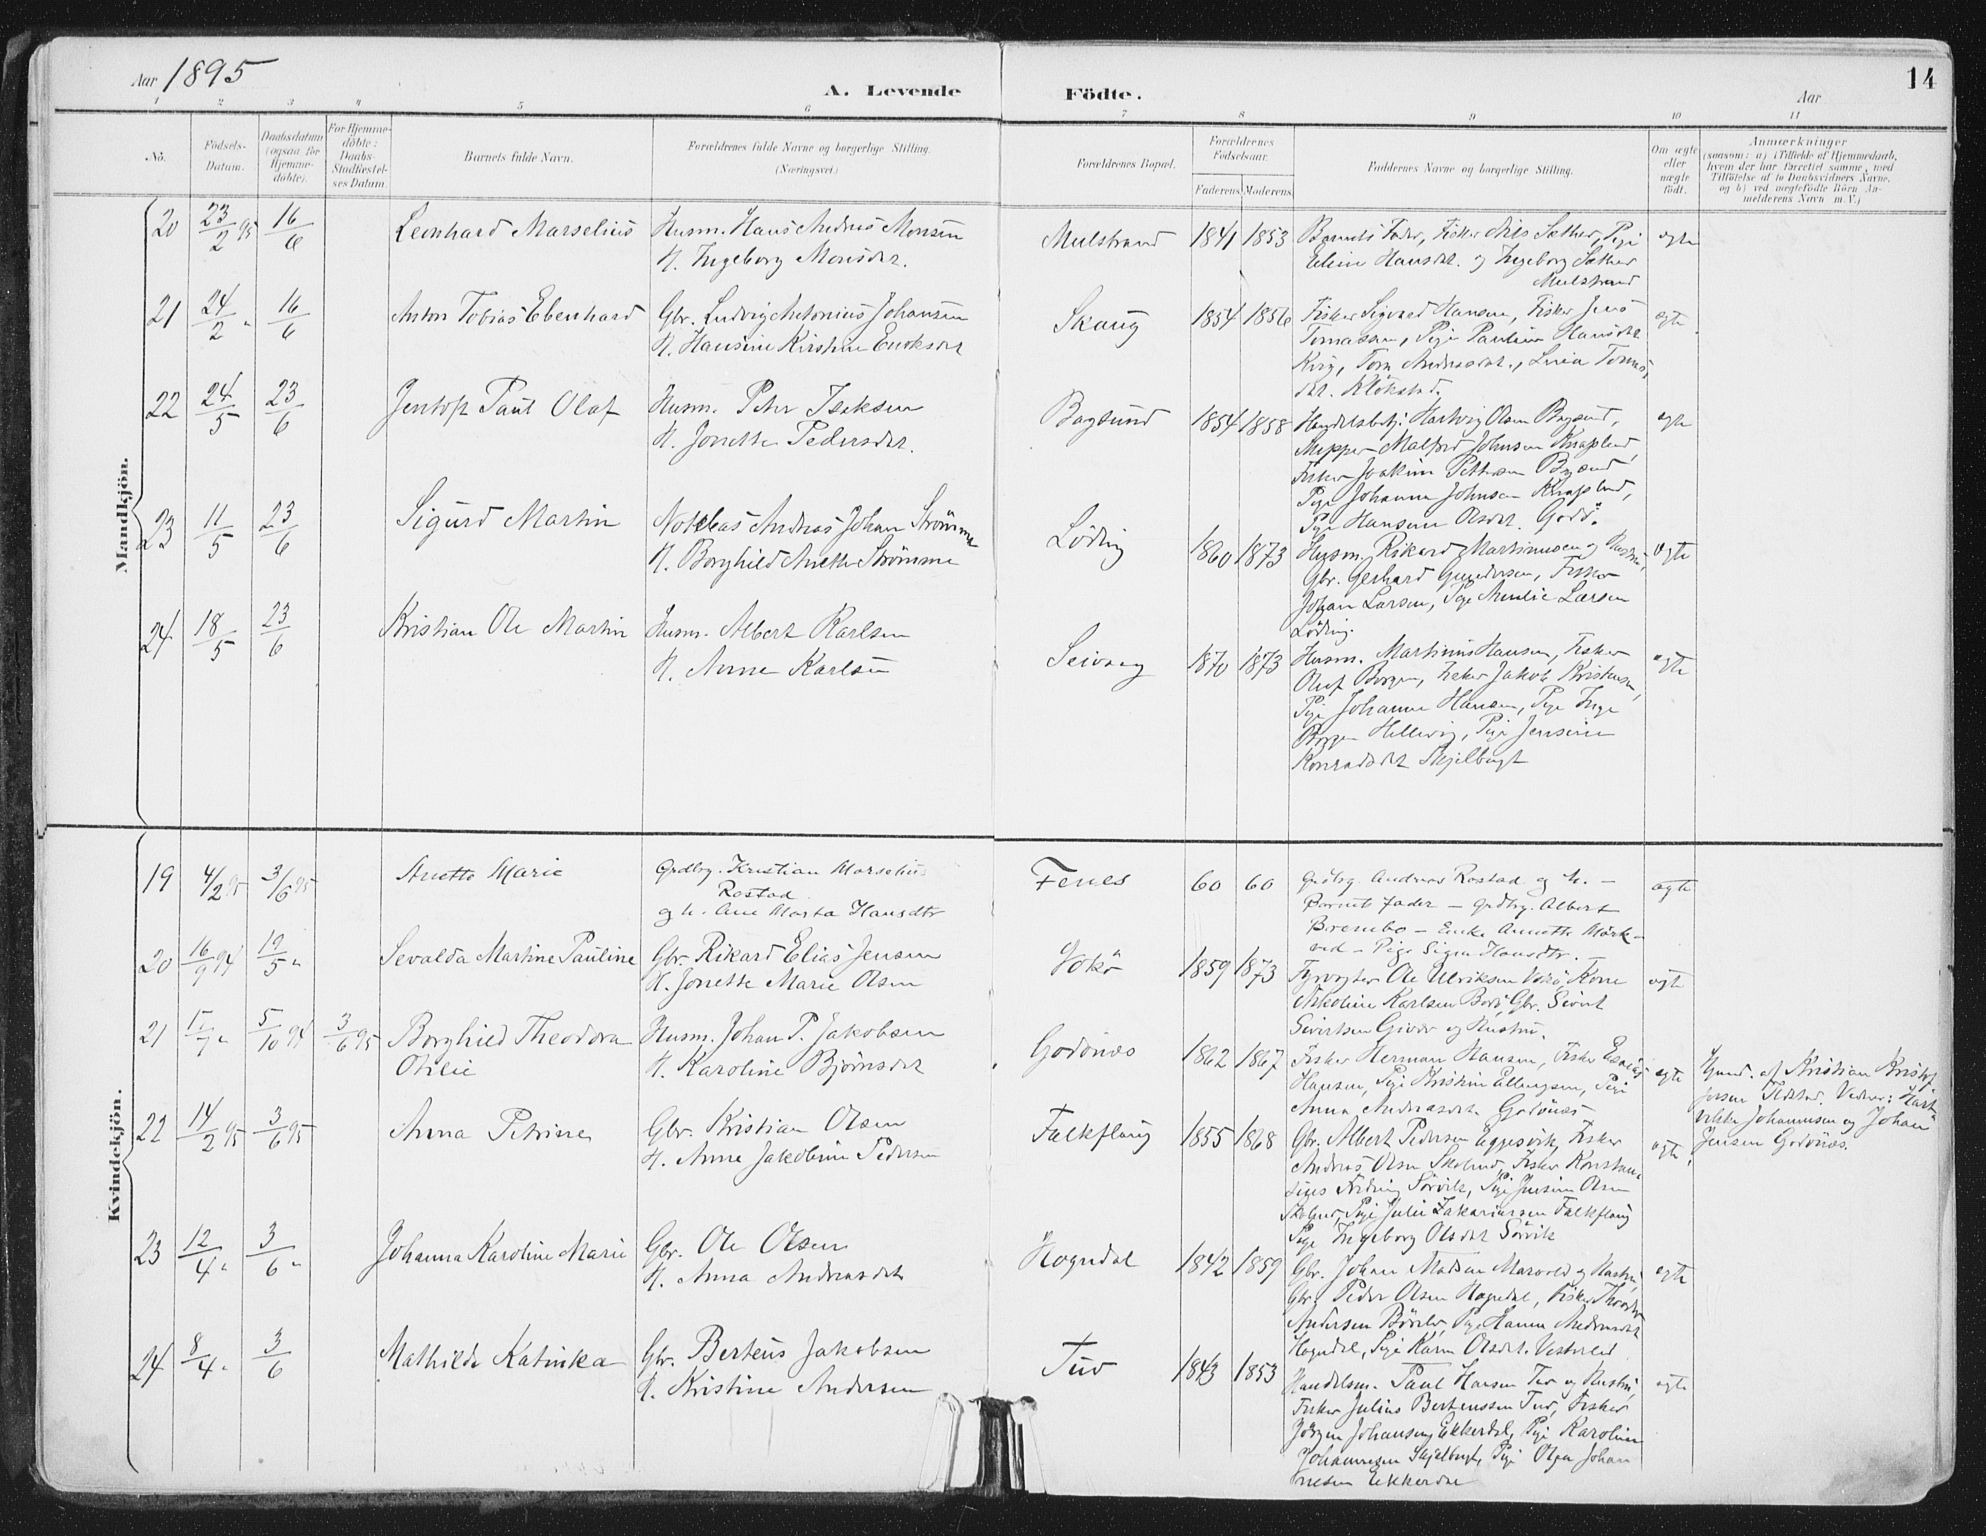 Aar 1895
A. Levende
Födte.
Aar
14
1 2 3 4 5 6 7 8 9 10 11
No.
Födsels-
Datum.
Daabsdatum
(ogsaa for
Hjemme-
döbte).
For Hjemme-
döbte:
Daabs-
Stadfæstel-
ses Datum.
Barnets fulde Navn.
Forældrenes fulde Navne og borgerlige Stilling.
(Næringsvei.)
Forældrenes Bopæl.
Forældrenes
Födselsaar.
Faderens Moderens
Faddernes Navne og borgerlige Stilling.
Om ægte
eller
uægte
födt.
Anmærkninger
(saasom: a) i Tilfælde af Hjemmedaab,
hvem der har forrettet samme, med
Tilföielse af to Daabsvidners Navne,
og b) ved uægtefödte Börn An-
melderens Navn m. V.)
Mandkjön.
20 23/2 95 16/6 Leonhard Marselius Husm. Hans Andreas Monsen
H. Ingeborg Monsdat.
Mulstrand 1841 1853 Barnets Fader, Fisker Nils Sæther, Pige
Eline Hansdat. og Ingeborg Sæther
Mulstrand
ægte
21 24/2 " 16/6 Anton Tobias Ebenhard Gbr. Ludvig Antonius Johansen
H. Hansine Kirstine Enoksdat
Skaug 1854 1856 Fisker Sigvard Hansen, Fisker Jens
Tomassen, Pige Pauline Hansdat
dat. Klökstad.
ægte
22 24/5 23/6 Jentoft Paul Olaf Husm. Peter Isaksen
H. Jonette Pedersdat.
Bagsund 1854 1858 Handelsbetj. Hartvig Olsen Bagsund,
Skipper Malfred Johnsen Knaplund
Fisker Joakim Pettersen Bagsund
Pige Johanna Johnsen Knaplund,
Pige Hansine Olsdat. Godö.
ægte
23 11/5 23/6 Sigurd Martin Notebas Andreas Johan Strömme
H. Borghild Anette Strömme
Löding 1860 1873 Husm. Rikard Martinusen og Hustru,
Gbr. Gerhard Gundersen, Fisker
Johan Larsen, Pige Amalie Larsen
Löding.
ægte
24 18/5 23/6 Kristian Ole Martin Husm. Albert Karlsen
H. Anne Karlsen
Seivaag 1870 1873 Husm. Martinus Hansen, Fisker
Oluf Borgen, Fisker Jakob Kristensen,
Pige Johanna Hansen, Pige Inga
Borgen Hellevig, Pige Jensine
Konradsdat Skjelbugt
ægte
Kvindekjön.
19 4/2 95 3/6 95 Anette Marie Grdbrg. Kristian Marselius
Rostad
og h. Ane Marta Hansdtr
Fenes 60 60 Grdbrg. Andreas Rostad og h. –
Barnets fader – grdbrg. Albert
Brembo – Enke Annette Mörk-
ved – Pige Signe Hansdtr. –
ægte
20 16/9 94 19/5 " Sevalda Martine Pauline Gbr. Rikard Elias Jensen
H. Jonette Marie Olsen
1859 1873 Fyrvogter Ole Ulriksen Kone
Nikoline Karlsen Gbr. Sivert
Sivertsen Givær og Hustru.
ægte
21 17/7 " 5/10 94 3/6 95 Borghild Theodora
Otilie
Husm. Johan P. Jakobsen
H. Karoline Björnsdat
Godönes 1862 1867 Fisker Herman Hansen, Fisker Esaias
Hansen, Pige Kristine Ellingsen, Pige
Anna Andreasdat. Godönes
ægte
Hjmd. af Kristian Kristof-
fersen Vidner: Hart-
vikke Johannesen og Johan
Jensen Godönes.
22 14/2 95 3/6 95 Anna Petrine Gbr. Kristian Olsen
H. Anne Jakobine Pedersen
Falkflaug 1855 1868 Gbr. Albert Pedersen Eggesvik, Fisker
Andreas Olsen Skolund, Fisker Konstan-
Sörvik, Pige Jensine Olsen
Skolund, Pige Julie Zakariassen Falkflaug
Pige Ingeborg Olsdat Sörvik
ægte
23 12/4 " 3/6 " Johanna Karoline Marie Gbr. Ole Olsen
H. Anna Andreasdat
Hogndal 1842 1859 Gbr. Johan Madsen og Hustru,
Gbr. Peder Olsen Hogndal, Fisker Theodor
Andersen Pige Hanna Andreasdat
Hogndal, Pige Karen Olsdat.
ægte
24 8/4 " 3/6 Mathilde Katinka Gbr. Berteus Jakobsen
H. Kristine Andersen
Tuv 1843 1853 Handelsm. Paul Hansen Tuv og Hustru,
Fisker Julius Berteussen Tuv, Fisker
Jörgen Johansen, Ekkerdal, Pige Karoline
Johannesen Skjelbugt, Pige Olga Johan
nesen Ekkerdal
ægte